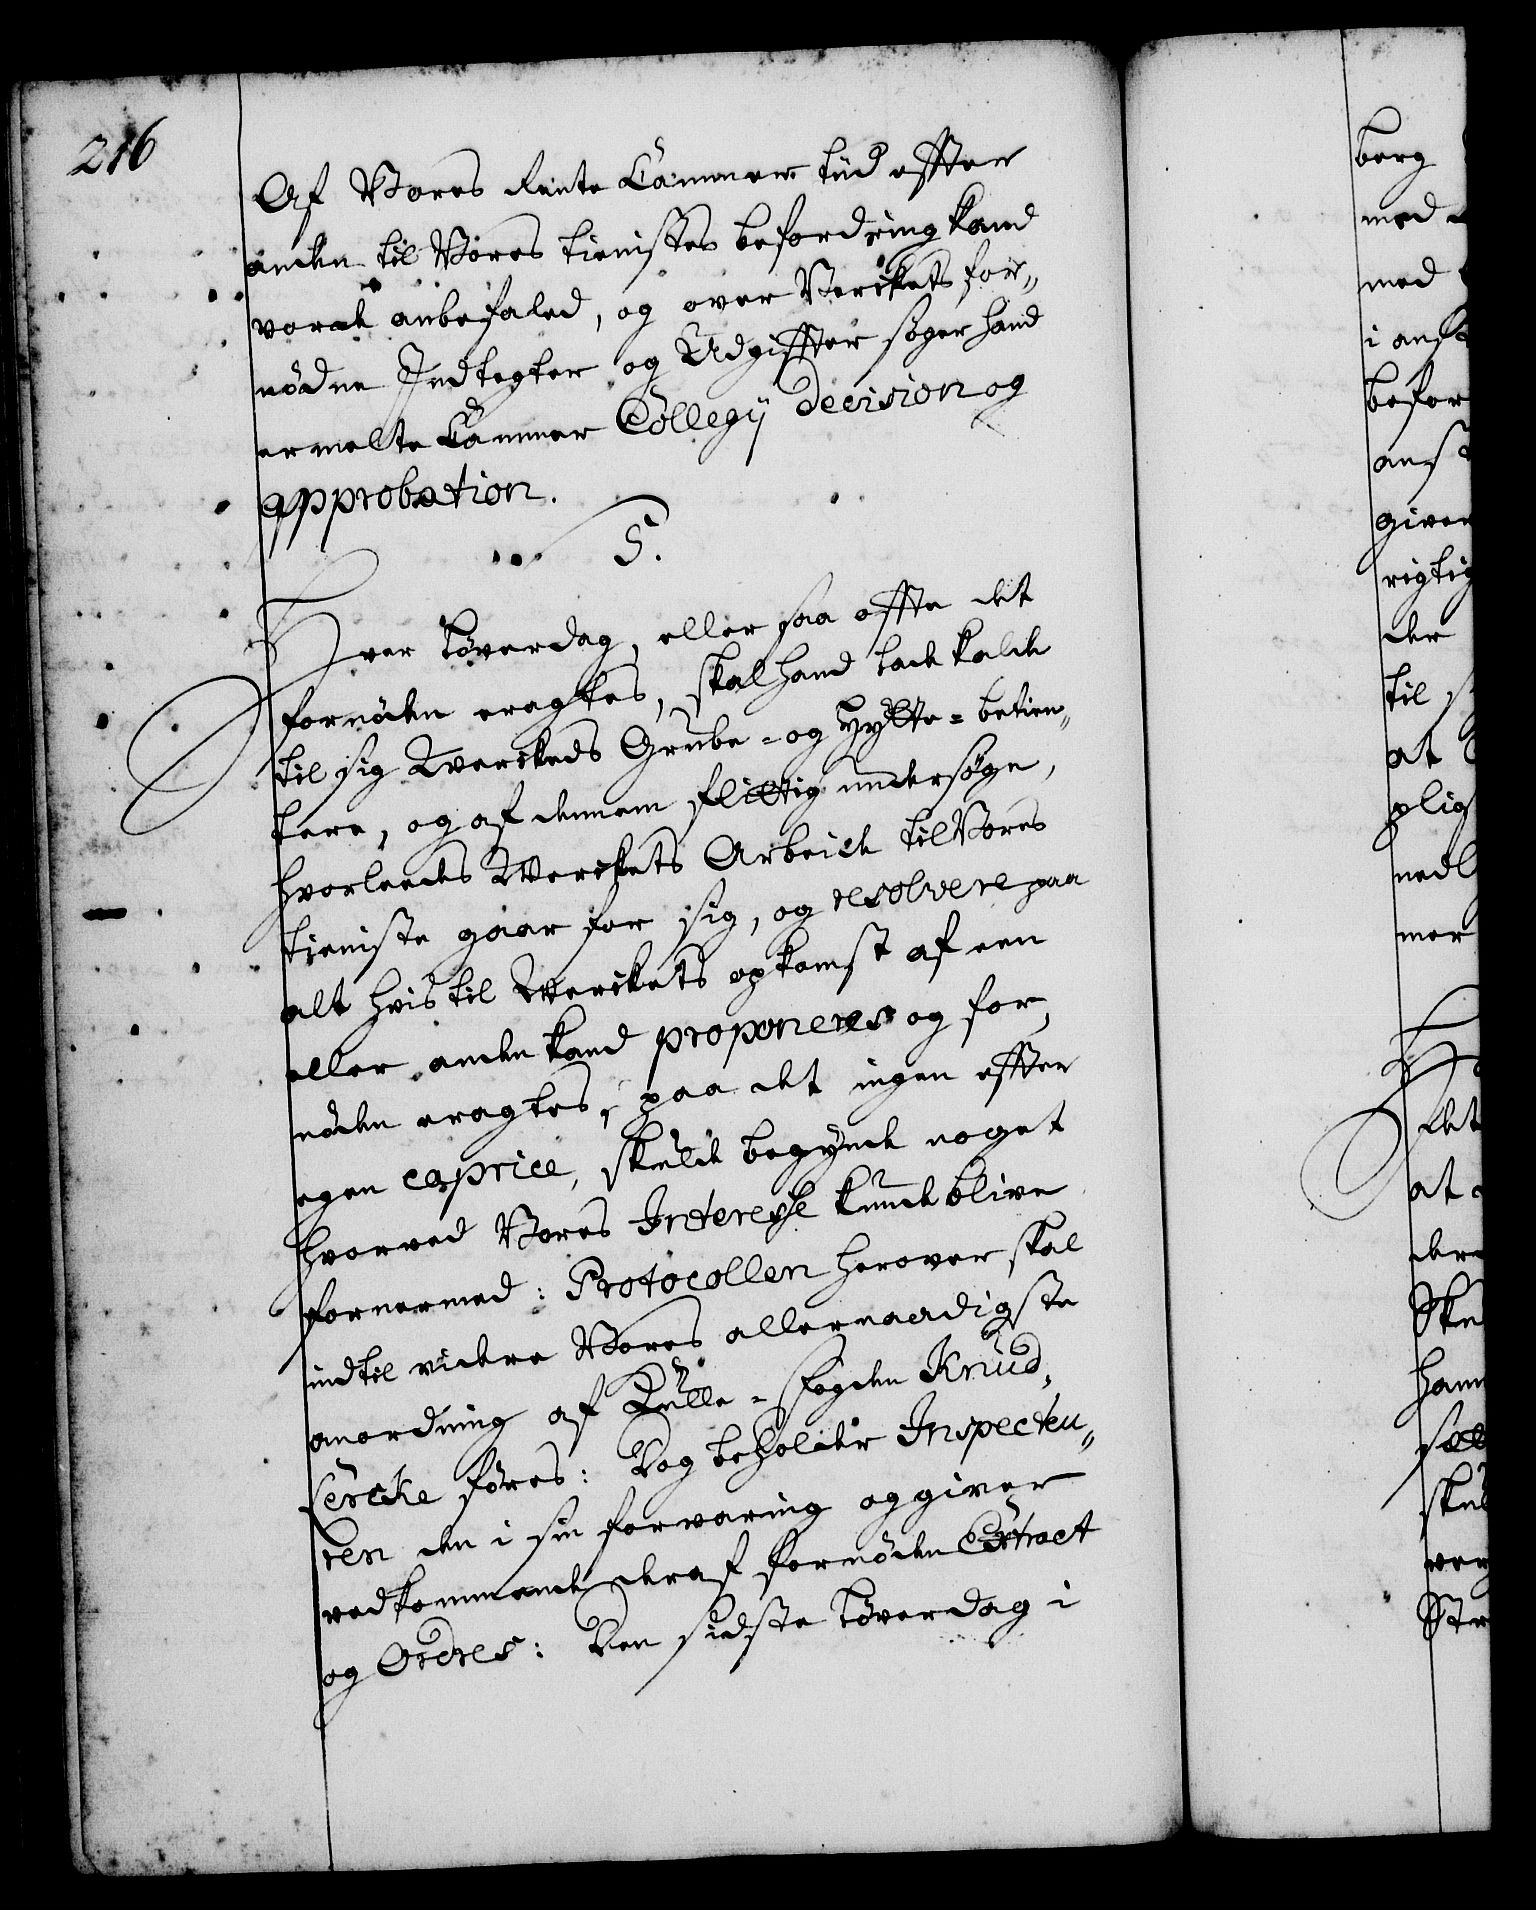 216
Af Vores Rente Cammer tiid efter
anden til Vores tienistes befordring kand
vorde anbefaled, og over Verckets for„
nödne Indtegter og Udgiffter söger hand
ermelte Cammer Collegij decision og
approbation.
5.
Hver Löverdag, eller saa offte det
fornöden eragtes, skal hand lade kalde
til sig Werckeds Grube- og Hytte-betien„
tere, og af dennem flittig undersöge,
hvorleedes Werckets Arbeide til Vores
tieniste gaar for sig, og resolvere paa
alt hvis til Werckets opkomst af een
eller anden kand proponeres og for„
nöden eragtes, paa det ingen effter
egen caprice, skulde begynde noget
hvorved Vores Interesse kunde blive
fornermed: Protocollen herover skal
indtil videre Vores allernaadigste
anordning af fogden Knud
föres: Dog beholder Inspecteu„
ren den i sin forvaring og giver
vedkommende deraf fornöden Extract
og Ordres: Den sidste Löverdag i
berg
med
med
i ans
befor
ans
giver
rigtig
der
til
at
plig
nedl
mer
det
at
der
Ske
ham
skul
ver
Str